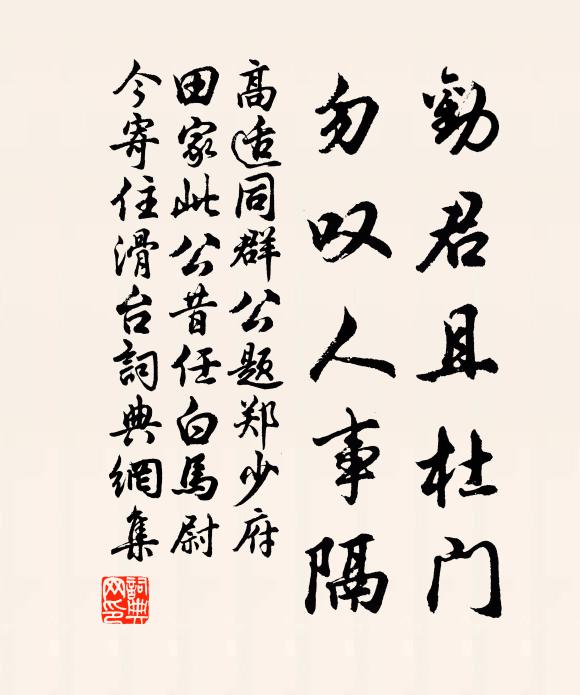 劝君且杜门
勿叹人事隔
高适同群公题郑少府
田家此公昔任白马尉
今寄住滑台詞典網集
詞典
网印